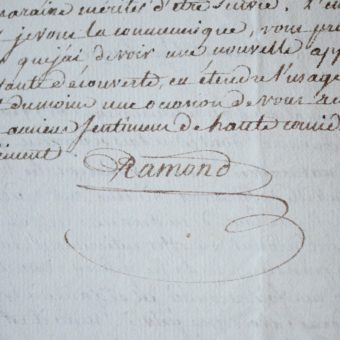 maraine mérite d'être suivie.
je vous la communique, vous pr
que j'ai devoir une nouvelle app
découverte, en étendre l'usage
dumoins une occasion de vous re
anciens sentimens de haute consid
Ramond